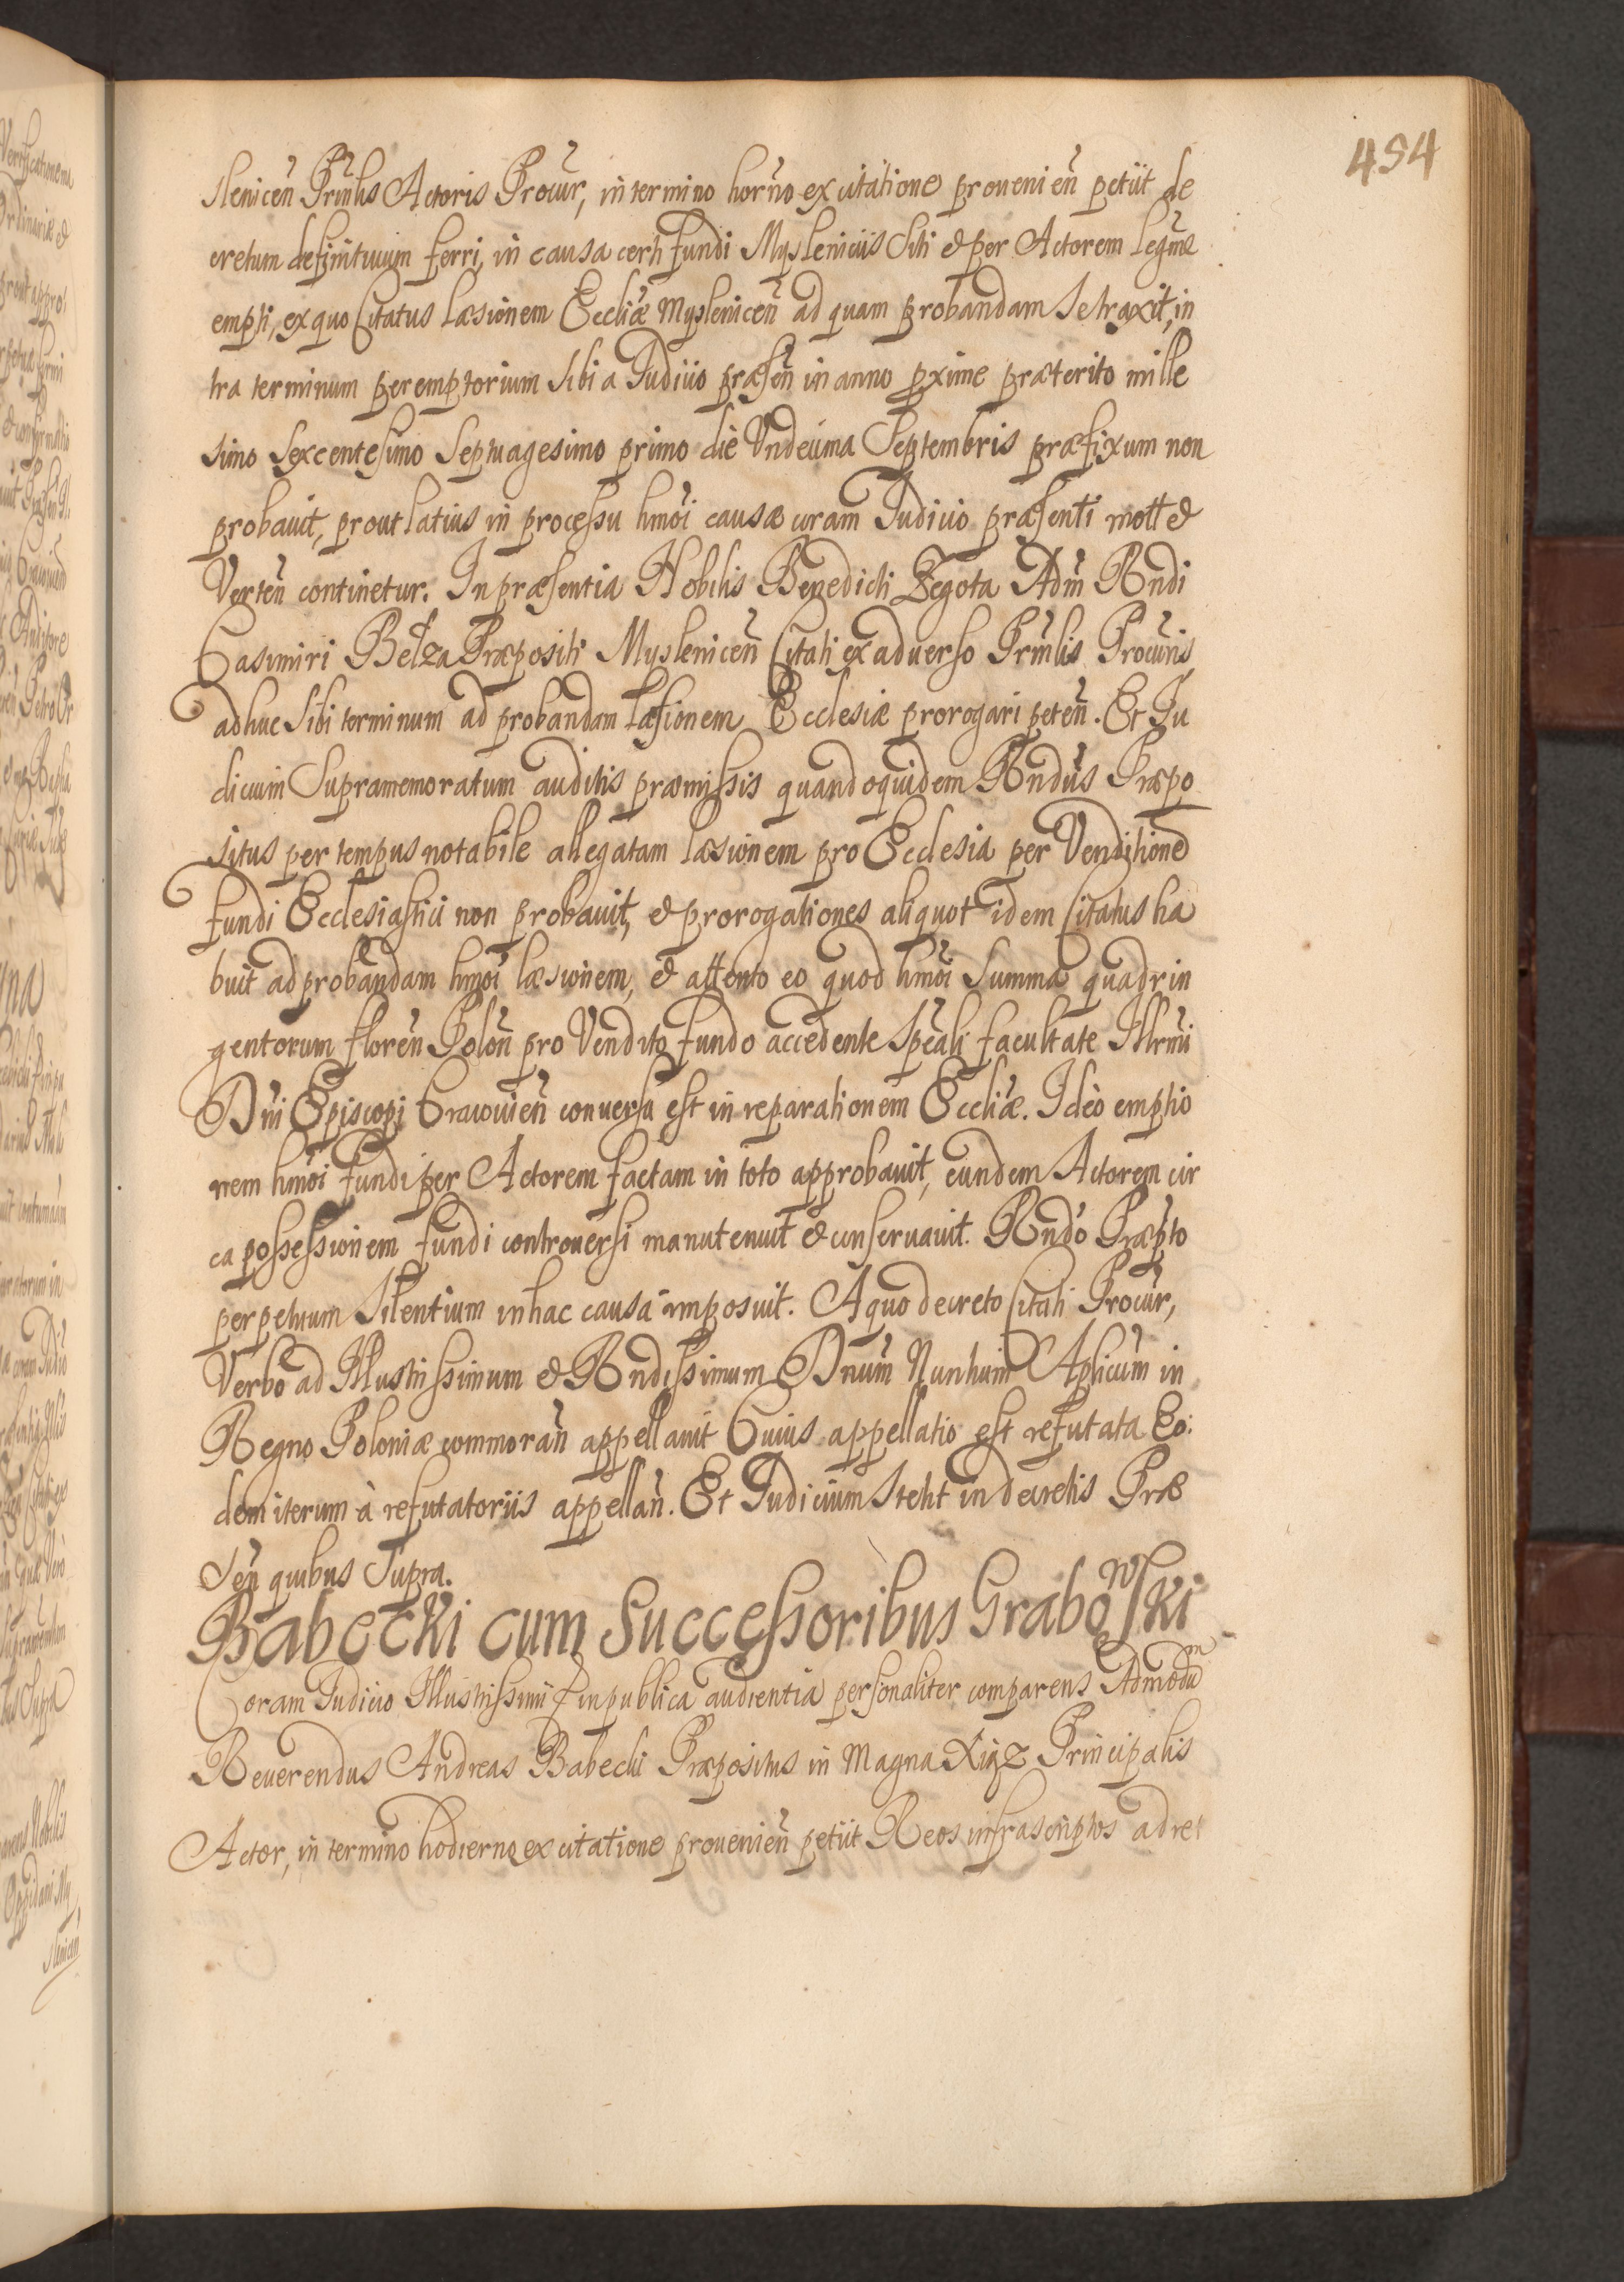 454
slenicen̄ Prinl̄is Actoris Procūr, in termino hor̄no ex citatione prouenien̄ petiit de
cretum definitiuum ferri, in causa certi fundi Myslenicijs siti et per Actorem legīme
empti, ex quo Citatus læsionem Eccl̄iæ Myslenicen̄ ad quam probandam se traxit, in
tra terminum peremptorium sibi a Judicio præsen̄ in anno proxime præterito mille
simo sexcentesimo septuagesimo primo die Vndecima Septembris præfixum non
probauit, prout latius in processu hm̄oi causæ coram Judicio præsenti mott et
Verten̄ continetur. In præsentia Nobilis Benedicti Zegota Adm̄ Rn̄di
Casimiri Bełza Præpositi Myslenicen̄ Citati ex aduerso Prinl̄is Procūris
adhuc sibi terminum ad probandam læsionem Ecclesiæ prorogari peten̄. Et Ju
dicium Supramemoratum auditis præmissis quandoquidem Rn̄dus Præpo
situs per tempus notabile allegatam læsionem pro Ecclesia per Venditione
fundi Ecclesiastici non probauit, et prorogationes aliquot idem Citatus ha
buit ad probandam hm̄oi læsionem, et attento eo quod hm̄oi summa quadrin
gentorum floren̄ Polon̄ pro Vendito fundo accedente sp̄eali facultate Illr̄mi
Dn̄i Episcopi Cracouien̄ conuersa est in reparationem Eccl̄iæ. Ideò emptio
nem hm̄oi fundi per Actorem factam in toto approbauit, eundem Actorem cir
ca possessionem fundi controuersi manutenuit et conseruauit. Rn̄do Præp̄to
perpetuum silentium in hac causa imposuit. A quo decreto Citati Procūr,
Verbo ad Illustrissimum et Rn̄dissimum Dn̄um Nuntium Ap̄licum in
Regno Poloniæ commoran̄ appellauit Cuius appellatio est refutata Eo:
dem iterum à refutatorijs appellan̄. Et Judicium stetit in decretis Præ
sen̄ quibus supra.
Babecki cum Successoribus Grabowski
Coram Judicio Illustrissimi et in publica audientia personaliter comparens Admodūm
Reuerendus Andreas Babecki Præpositus in Magna Xiąz Principalis
Actor, in termino hodierno ex citatione prouenien̄ petiit Reos infrascriptos ad ret